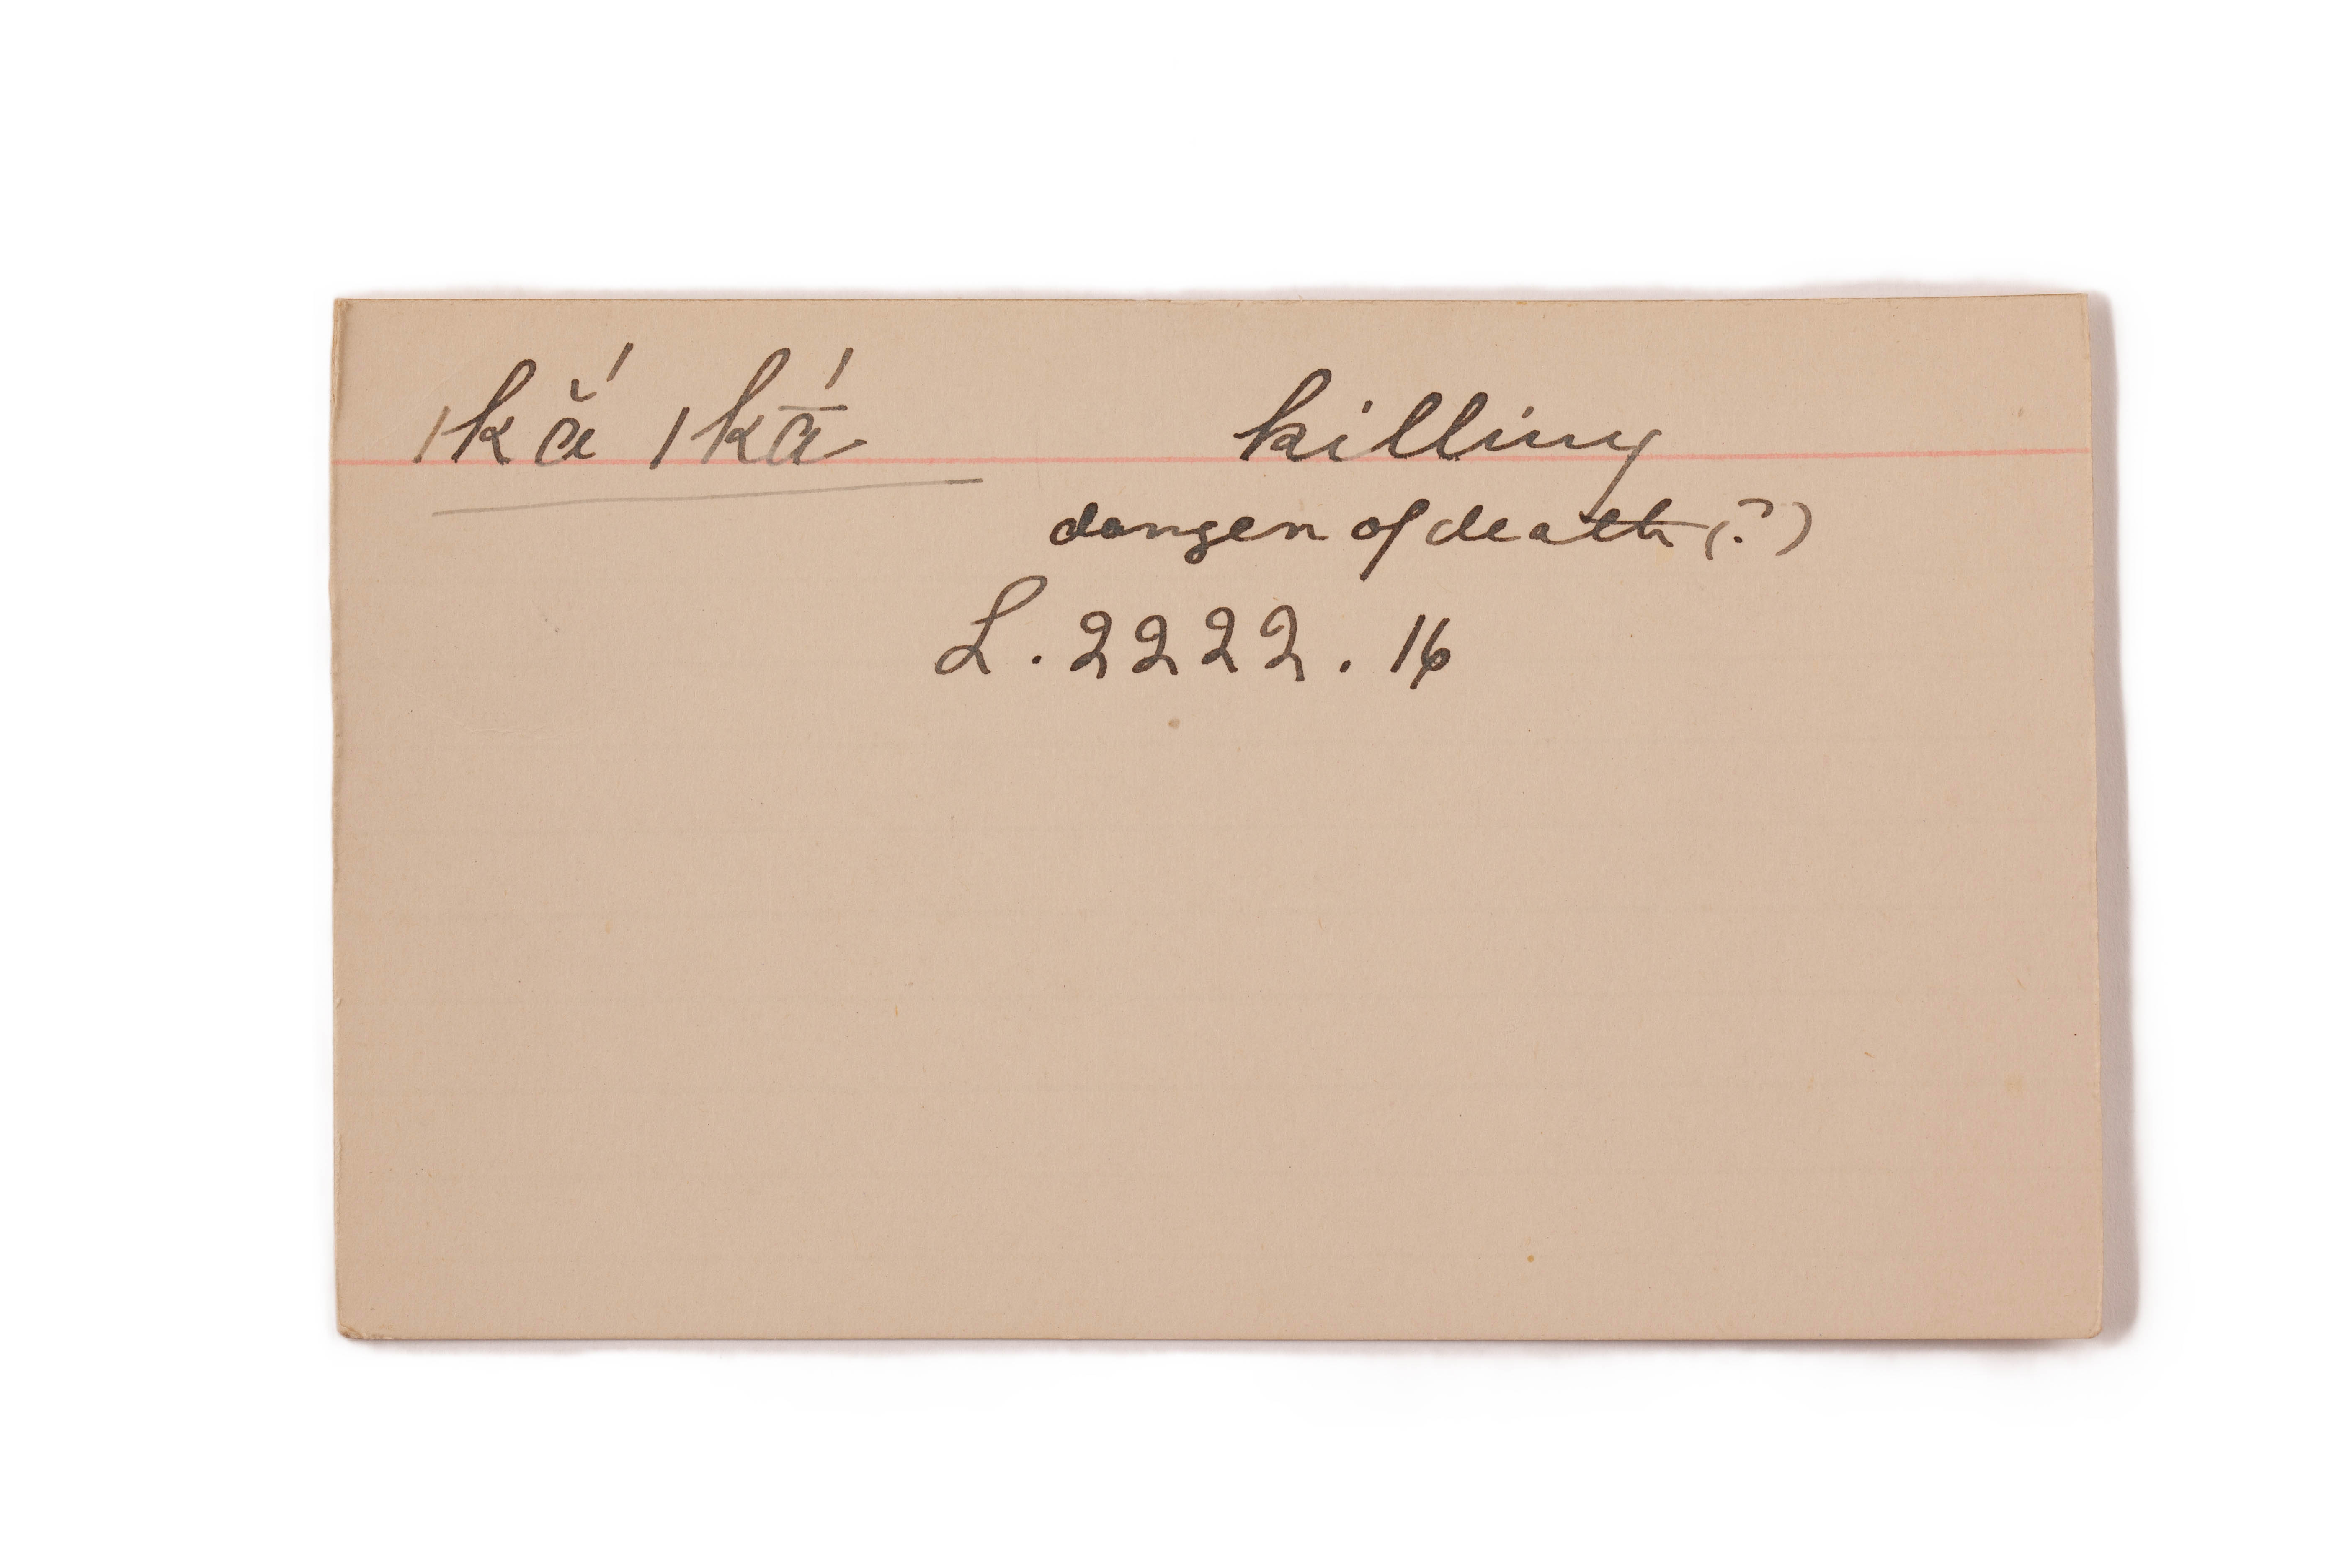 |kắ |kā́ killing
danger of death (?)
L. 2222. 16